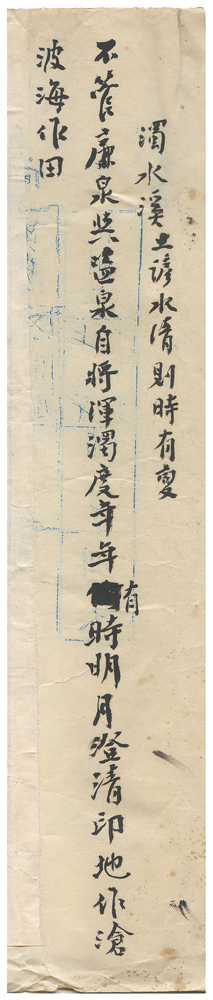 濁水溪土諺水清則時有變
不管廉泉與盜泉自將渾濁度年年有時明月澄清印地作滄
波海作田